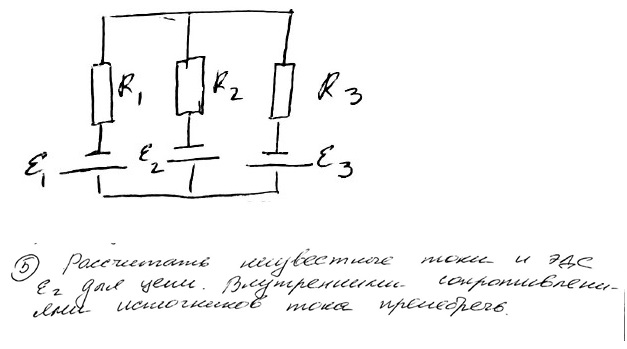 R₁ R₂ R₃
ℰ₁ ℰ₂ ℰ₃
⑤ Рассчитать неизвестные токи и ЭДС
ℰ₂ для цепи. Внутренними сопротивлени-
ями источников тока пренебречь.